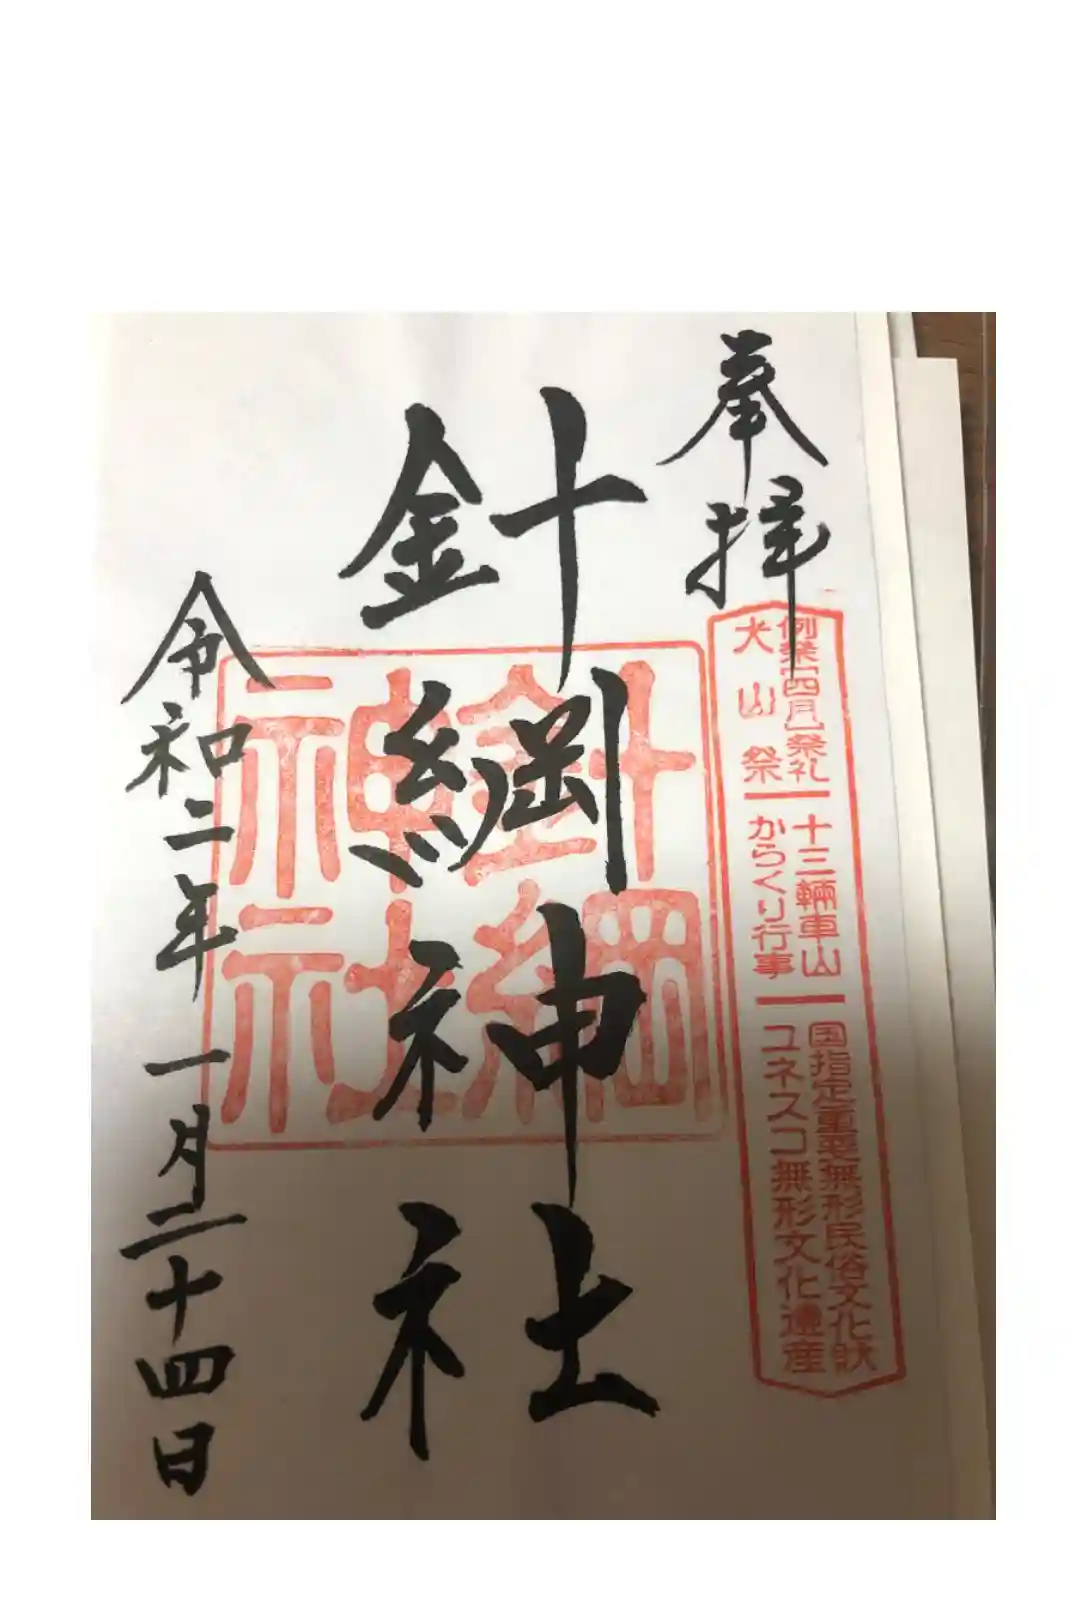 奉拝
例祭[四月]祭礼
犬山祭
十三輛車山
からくり行事
国指定重要無形民俗文化財
ユネスコ無形文化遺産
針綱神社
針綱
神社
令和二年一月二十四日